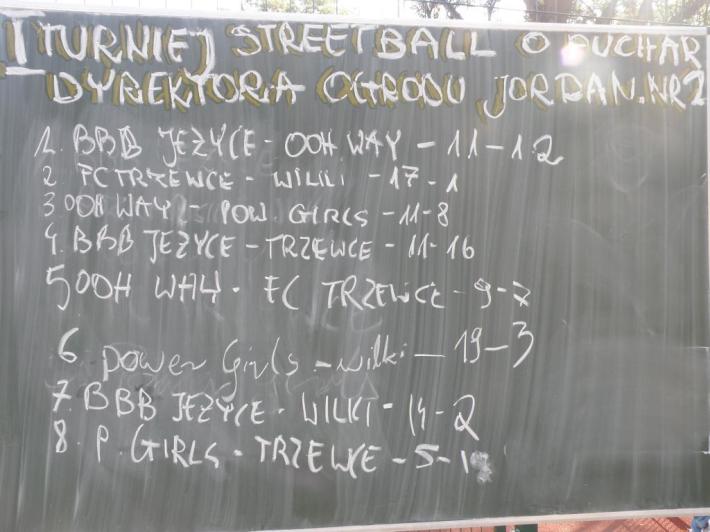 I TURNIEJ STREETBALL O PUCHAR
DYREKTORA OGRODU JORDAN. NR 2
1. BBB JEŻYCE - OOH WAY - 11-12
2. FC TRZEWCE - WILKI - 17-1
3 OOH WAY - POW. GIRLS - 11-8
4. BBB JEŻYCE - TRZEWCE - 11-16
5 OOH WAY - FC TRZEWCE - 9-7
6. power Girls - wilki - 19-3
7. BBB JEŻYCE - WILKI - 14-2
8. P. GIRLS - TRZEWCE - 5-